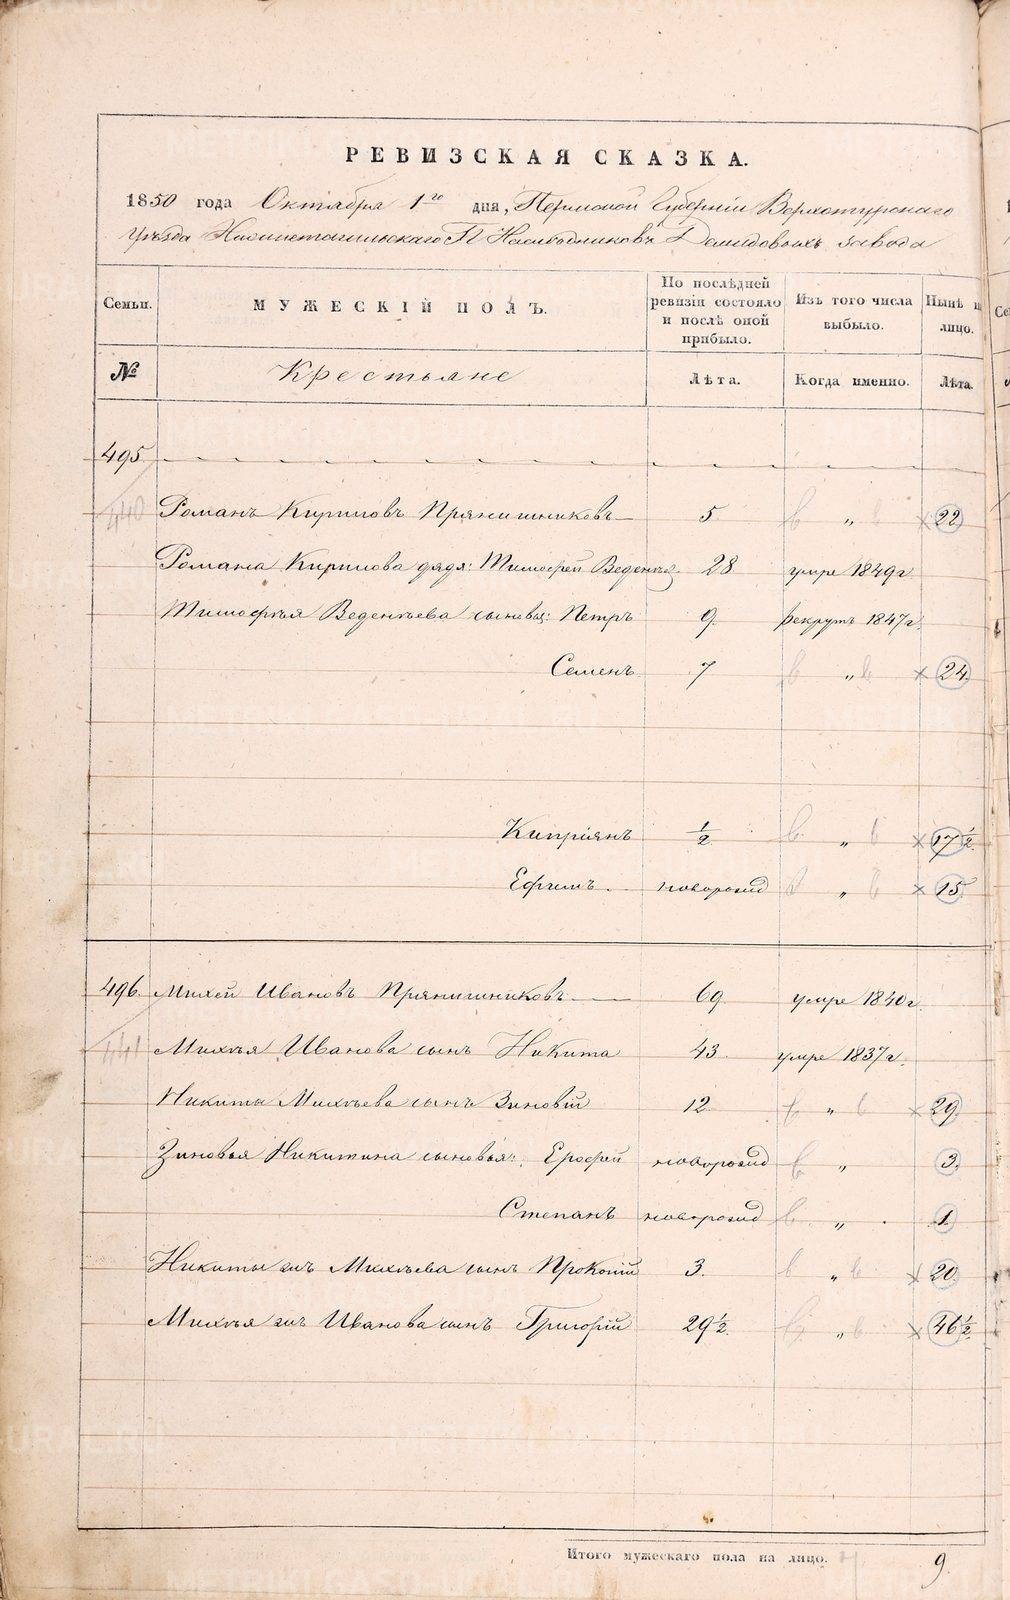 РЕВИЗСКАЯ СКАЗКА.
1850 года Октября 1го дня, Пермской Губернии Верхотурскаго
Уѣзда Нижнетагильскаго Наслѣдниковъ Демидовыхъ завода
Семьи. МУЖЕСКІЙ ПОЛЪ. По послѣдней ревизіи состояло и послѣ оной прибыло. Изъ того числа выбыло. Нынѣ н лицо.
№ Крестьяне Лѣта. Когда именно. Лѣта.
495
440 Романъ Кириловъ Прянишниковъ 5 „ 22
Романа Кирилова дядя: Тимофей Веденѣев 28 умре 1849 г
Тимофѣя Веденѣева сыновья: Петръ 9. рекрутъ 1847 г.
Семенъ 7 „ 24
Кипріянъ 1/2 „ 17 1/2
Ефимъ новорожд „ 15
496. Михей Ивановъ Прянишниковъ 69 умре 1840 г.
441 Михѣя Иванова сынъ Никита 43. умре 1837 г.
Никиты Михѣева сынъ Зиновій 12 „ 29
Зиновья Никитина сыновья: Ерофей новорожд „ 3.
Степанъ новорожд „ 1.
Никиты жъ Михѣева сынъ Прокопій 3. „ 20
Михѣя жъ Иванова сынъ Григорій 29 1/2. „ 46 1/2
Итого мужескаго пола на лицо. 9.
METRIKI.GASO-URAL.RU